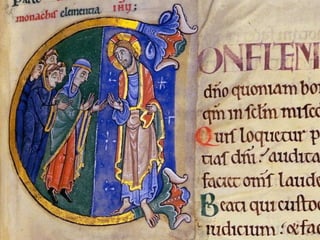 monachis clementia
ONFITEM
dño quoniam bo
qm in sclm misc
Quis loquetur p
tias dñi: audita
faciet om̃s laude
Beati qui custo
iudicium: & fac